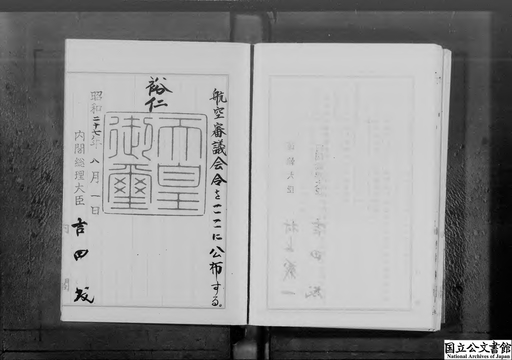 航空審議会令をここに公布する。
裕仁
天皇御璽
昭和二十七年八月一日
内閣総理大臣
吉田茂
内閣
国立公文書館
National Archives of Japan